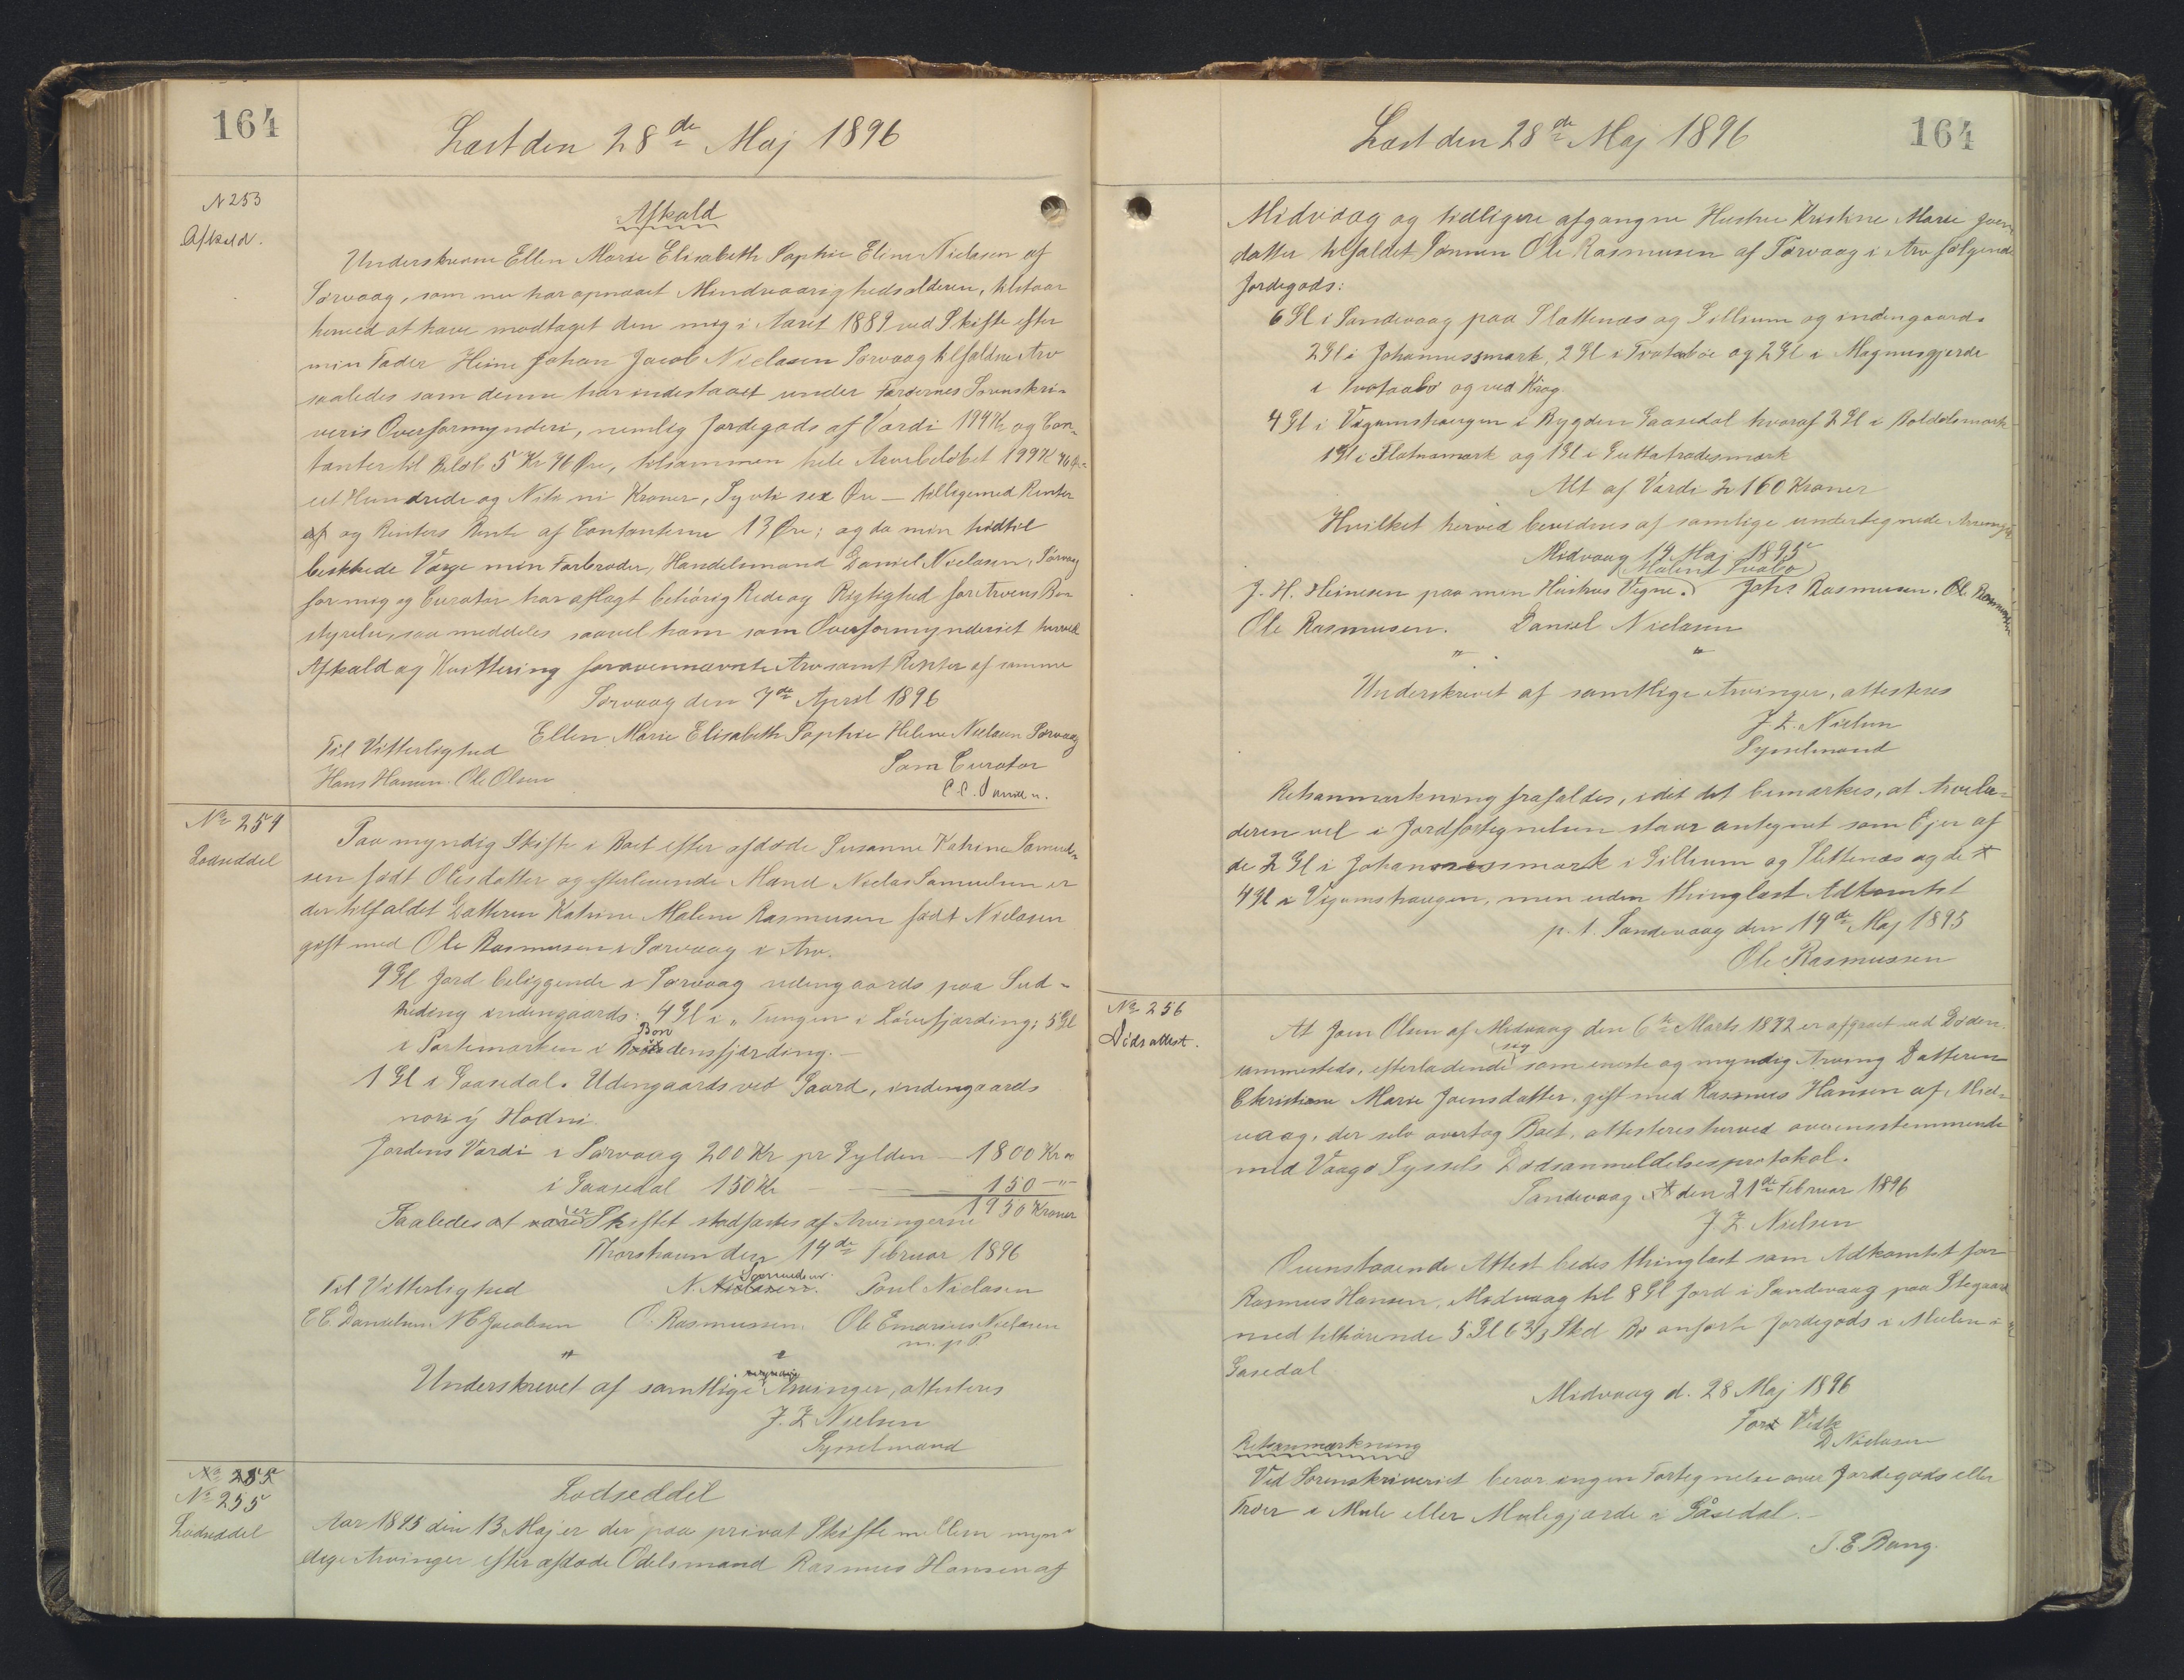 164
Læst den 28de Maj 1896
N 253
Afkald.
Afkald
Underskrevne Ellen Marie Elisabeth Sophie Eline Nielasen af
Sørvaag, som nu har opnaaet Mindreaarighedsalderen, tilstaar
herved at have modtaget den mig i Aaret 1889 ved Skifte efter
min Fader Heine Johan Jacob Nielasen Sørvaag tilfaldne Arv
saaledes som denne har indestaaet under Færøernes Sorenskri-
veris Overformynderi, nemlig Jordegods af Værdi 194 Kr og Con-
tanter til Beløb 5 Kr 76 Øre, tilsammen hele Arvebeløbet 199 Kr 76 Øre
eet Hundrede og Niti ni Kroner, Syvti sex Øre — tilligemed Renter
af og Renters Rente af Contanterne 13 Øre; og da min hidtil
beskikkede Værge min Farbroder, Handelsmand Daniel Nielasen, Sørvaag
for mig og Curator har aflagt behørig Rede og Rigtighed for Arvens Be-
styrelse, saa meddeles saavel ham som Overformynderiet herved
Afkald og Kvittering for ovennævnte Arv samt Renter af samme
Sørvaag den 7de April 1896
Ellen Marie Elisabeth Sophie Helene Nielasen Sørvaag
Til Vitterlighed
Som Curator
Hans Hansen. Ole Olsen
No 254
Lodseddel
Paa myndig Skifte i Boet efter afdøde Susanne Katrine Samuel-
sen født Olesdatter og efterlevende Mand Nielas Samuelsen er
der tilfaldet Datteren Katrine Malene Rasmusen født Nielasen
gift med Ole Rasmusen i Sørvaag i Arv.
9 Gl Jord beliggende i Sørvaag udengaards paa Sud-
heding indengaards: 4 Gl i "Tungen i Løvefjærding; 5 Gl
i Parkemarken i Bondensfjærding.—
1 Gl i Gaasedal. Udengaards ved Gaard, indengaards
nori ÿ Hodni.
Jordens Værdi i Sørvaag 200 Kr pr Gylden — 1800 Kr
i Gaasedal 150 Kr — 150 — "
1950 Kroner
Saaledes at være er Skiftet stadfæstes af Arvingerne
Thorshavn den 14de Februar 1896
Til Vitterlighed N. Nielasen. Samuelsen. Poul Nielasen
E C. Danielsen N C Jacobsen O. Rasmussen. Ole Emarius Nielasen
m. p. P.
" "
Underskrevet af samtlige myndige Arvinger, attesteres
J. Z Nielsen
Sysselmand
No 255
No 255
Lodseddel
Lodseddel
Aar 1895 den 13 Maj er der paa privat Skifte mellem myn-
dige Arvinger efter afdøde Odelsmand Rasmus Hansen af
Læst den 28de Maj 1896
164
Midvaag og tidligere afgangne Hustru Kristine Marie Joens
datter tilfaldet Sønnen Ole Rasmusen af Sørvaag i Arv følgende
Jordegods:
6 Gl i Sandevaag paa Slettenæs og Gillium og indengaards
2 Gl i Johannesmark, 2 Gl i Tvotaboe og 2 Gl i Magnusgjerde
i Tvotaabø og ved Krog
4 Gl i Vigumshaugen i Bygden Gaasedal hvoraf 2 Gl i Boldelsmark
1 Gl i Flatnamark og 1 Gl i Guttatrodesmark
Alt af Værdi 2160 Kroner
Hvilket herved bevidnes af samtlige undertegnede Arvinger
Midvaag 14 Maj 1895
(Malene Svabo)
J. H. Heinesen paa min Hustrus Vegne. Johs Rasmusen. Ole Rasmusen
Ole Rasmusen. Daniel Nielasen
" "
Underskrevet af samtlige Arvinger, attesteres
J. Z. Nielsen
Sysselmand
Retsanmærkning frafaldes, idet det bemærkes, at Arvela-
deren vel i Jordfortegnelsen staar antegnet som Ejer af
de 2 Gl i Johannesmark i Gillium og Slettenæs og de
4 Gl i Vigumshaugen, men uden thinglæst Adkomst
p. t. Sandevaag den 14de Maj 1895
Ole Rasmussen
No 256
Vidsattest.
At Joen Olsen af Midvaag den 6te Marts 1892 er afgaaet ved Døden
sammesteds, efterladende sig som eneste og myndig Arving Datteren
Christiane Marie Joensdatter, gift med Rasmus Hansen af Mid-
vaag, der selv overtog Boet, attesteres herved overensstemmende
med Vaagø Syssels Dødsanmeldelsesprotokol.
Sandevaag den 21de Februar 1896
J Z. Nielsen
Ovenstaaende Attest bedes thinglæst som Adkomst for
Rasmus Hansen, Midvaag til 8 Gl Jord i Sandevaag paa Stegaard
med tilhørende 5 Gl 6 2/3 Skd anførte Jordegods i Mulen i
Gasedal
Midvaag d. 28 Maj 1896
D Nielasen
Retsanmærkning
Ved Sorenskriveriet beror ingen Fortegnelse over Jordegods eller
Træer i Mule eller Mulegjærde i Gåsedal.—
S. E. Bang.